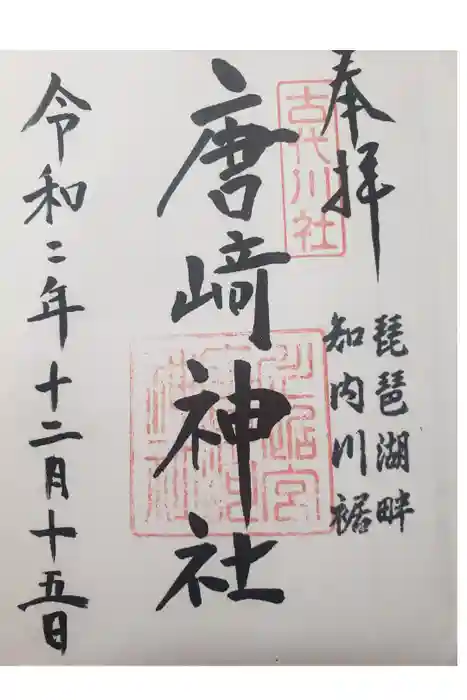 奉拝
琵琶湖畔
知内川裾
古代川社
唐崎神社
令和二年十二月十五日